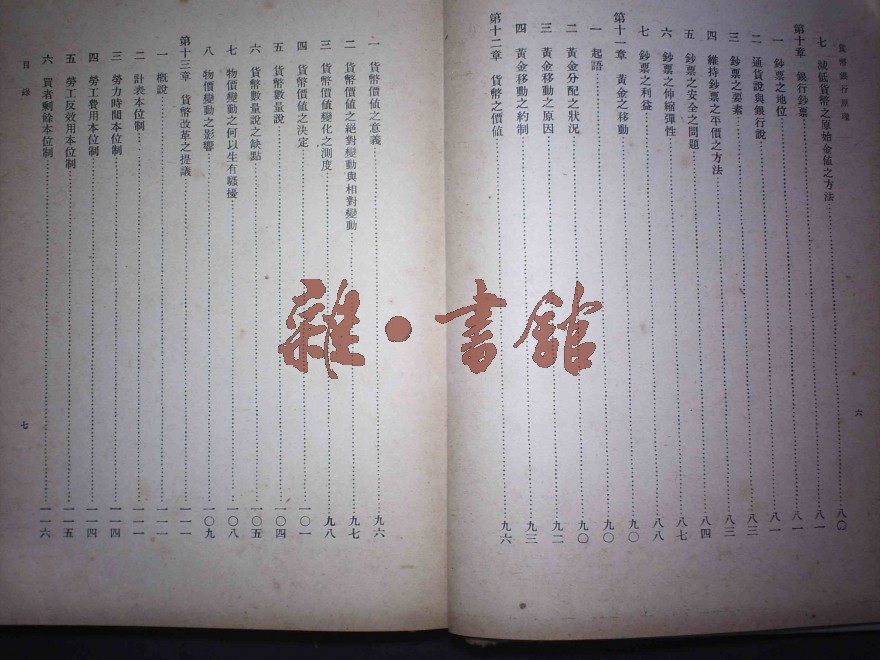 貨幣銀行原理
七 減低貨幣之原始金值之方法 八〇
第十章 銀行鈔票 八一
一 鈔票之地位 八一
二 通貨說與銀行說 八三
三 鈔票之要素 八三
四 維持鈔票之平價之方法 八四
五 鈔票之安全之問題 八七
六 鈔票之伸縮彈性 八八
七 鈔票之利益 九〇
第十一章 黃金之移動 九〇
一 起語 九〇
二 黃金分配之狀況 九二
三 黃金移動之原因 九二
四 黃金移動之約制 九三
第十二章 貨幣之價值 九六
六
一 貨幣價值之意義 九六
二 貨幣價值之絕對變動與相對變動 九七
三 貨幣價值變化之測度 九八
四 貨幣價值之決定 一〇一
五 貨幣數量說 一〇四
六 貨幣數量說之缺點 一〇五
七 物價變動之何以生有騷擾 一〇八
八 物價變動之影響 一〇九
第十三章 貨幣改革之提議 一一一
一 槪說 一一一
二 計表本位制 一一一
三 勞力時間本位制 一一四
四 勞工費用本位制 一一四
五 勞工反效用本位制 一一五
六 買者剩餘本位制 一一六
目錄
七
雜·書館